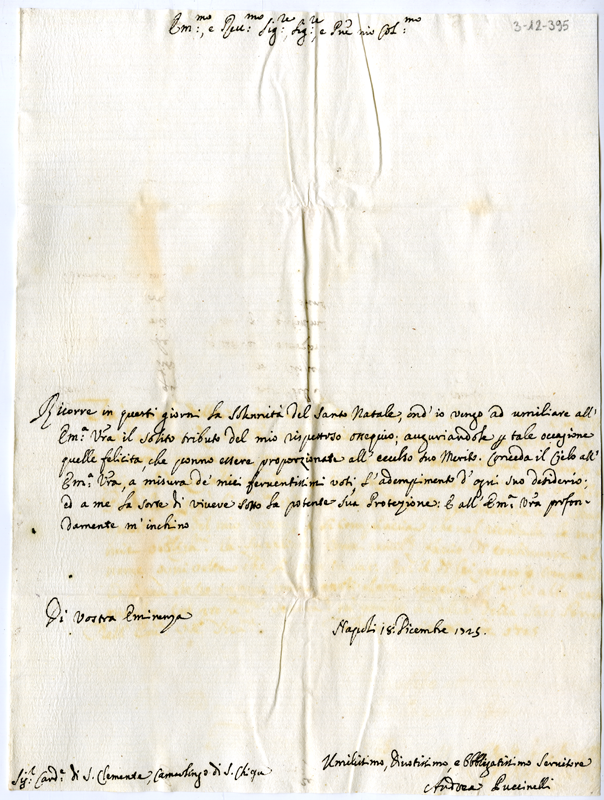 3-12-395
Em:mo, e Reu:mo Sig:re, Sig:re, e Pñe mio Col:mo
Ricorre in questi giorni la Solennità del Santo Natale, ond' io vengo ad umiliare all'
Em:a Vrã il solito tributo del mio rispettoso ossequio; auguriandole p tale occasione
quelle felicità, che ponno essere proporzionate all' eccelso suo Merito. Conceda il Cielo all'
Em:a Vrã, a misura de' miei ferventissimi voti, l' adempimento d' ogni suo desiderio;
ed a me la sorte di vivere sotto la potente sua Protezione: E all' Em:a Vrã profon-
damente m' inchino
Di Vostra Eminenza
Napoli 18: Dicembre 1725.
Umilissimo, Divotissimo, e Obbligatissimo Servitore
Sig:r Card:e di S. Clemente, Camerlingo di S. Chiesa
Andrea Puccinelli